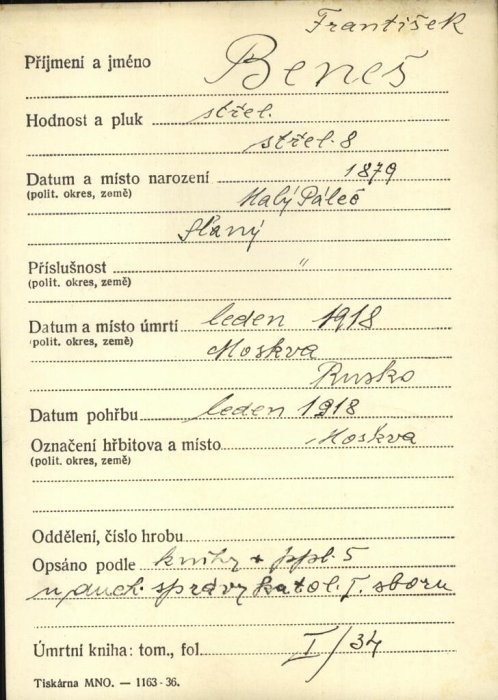 František
Příjmení a jméno Beneš
Hodnost a pluk střel.
střel. 8
Datum a místo narození 1879
(polit. okres, země) Malý Páleč
Slaný
Příslušnost "
(polit. okres, země)
Datum a místo úmrtí leden 1918
(polit. okres, země) Moskva
Rusko
Datum pohřbu leden 1918
Označení hřbitova a místo Moskva
(polit. okres, země)
Oddělení, číslo hrobu
Opsáno podle knihy + ppl. 5
duch. správy katol. I. sboru
Úmrtní kniha: tom., fol. I/34
Tiskárna MNO. — 1163-36.